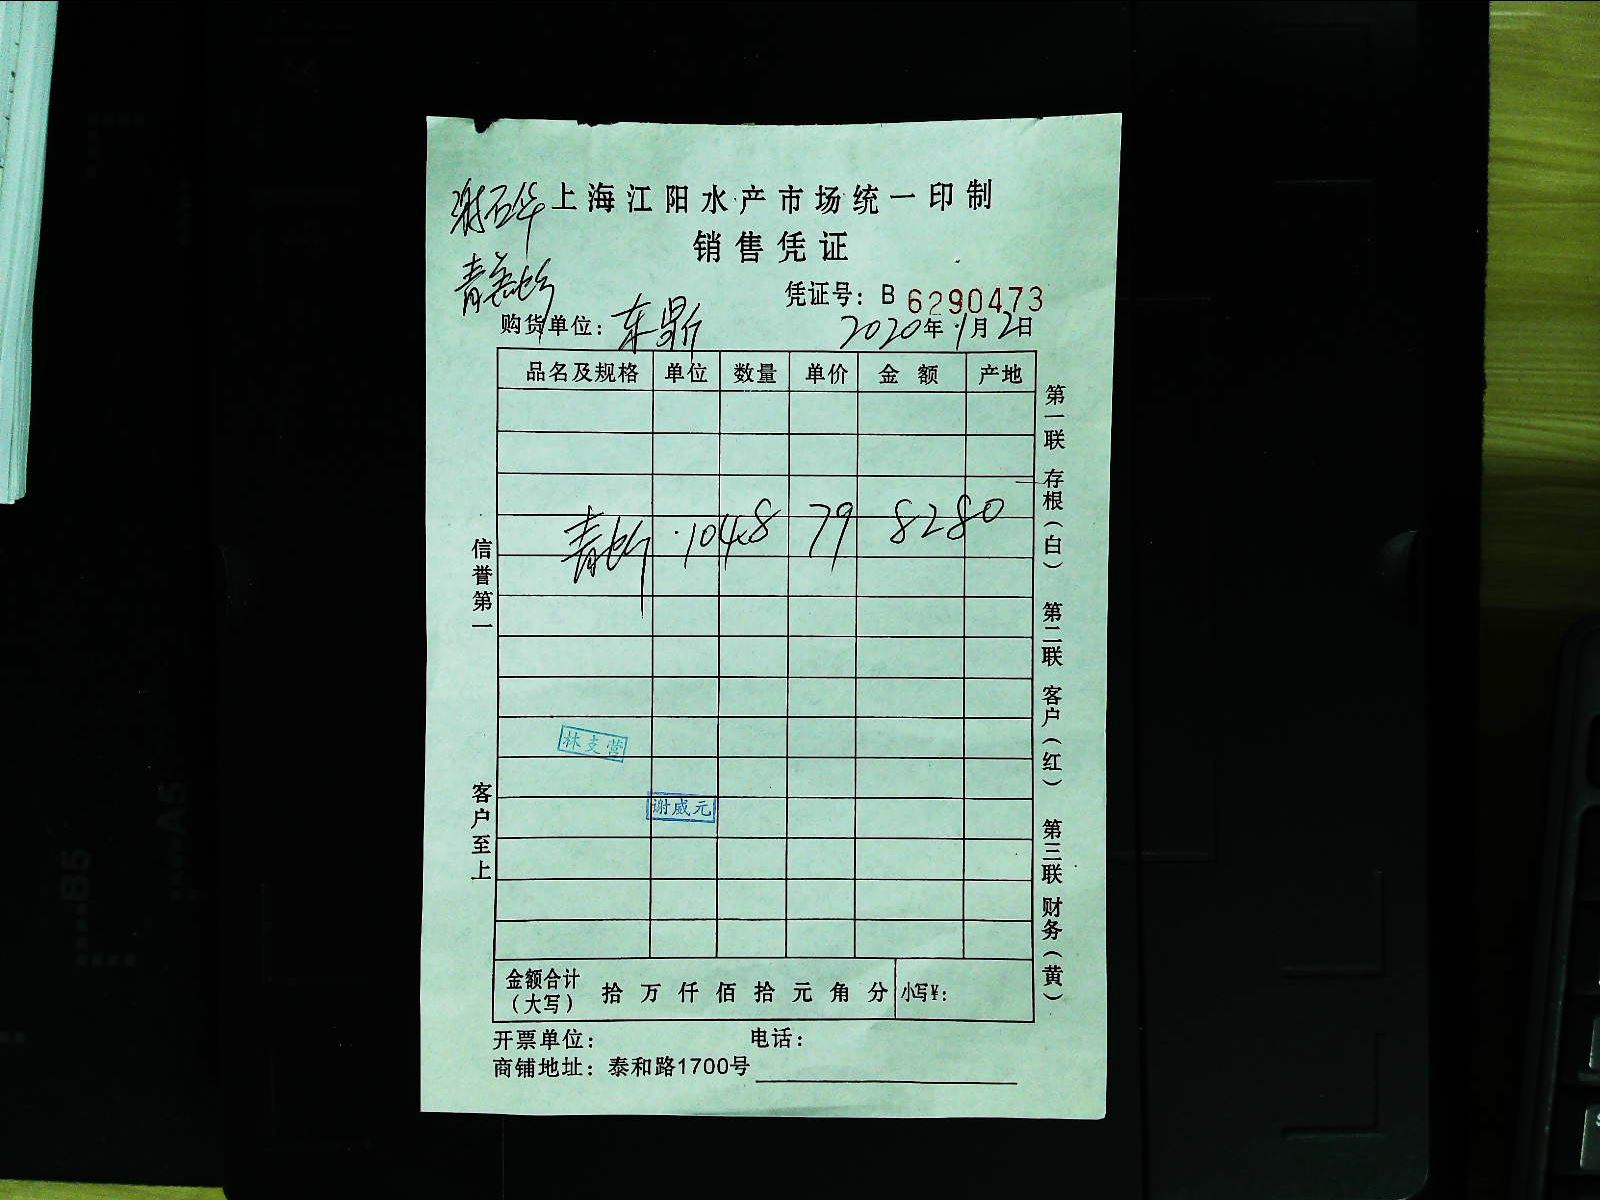 上海江阳水产市场统一印制
销售凭证
凭证号：B 6290473
购货单位：东
2020年1月2日
品名及规格 单位 数量 单价 金额 产地
青 104.8 79 8280
林支营
谢威元
金额合计（大写） 拾 万 仟 佰 拾 元 角 分 小写¥：
开票单位： 电话：
商铺地址：泰和路1700号
信誉第一
客户至上
第一联 存根（白） 第二联 客户（红） 第三联 财务（黄）
B5
A5